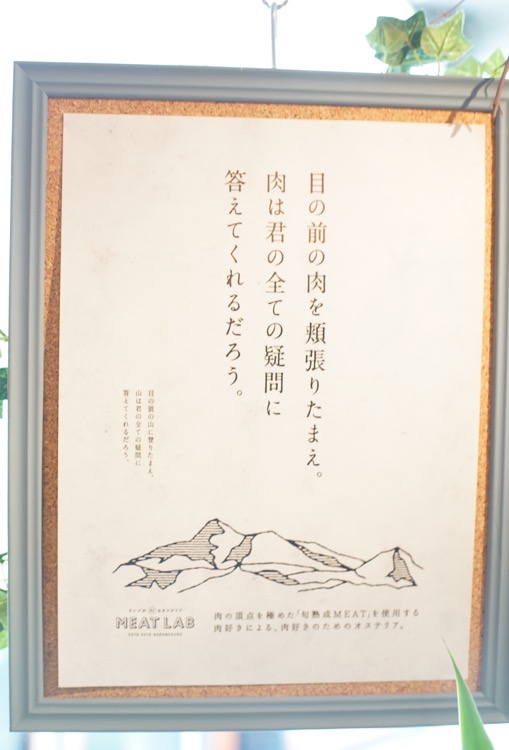 目の前の肉を頬張りたまえ。
肉は君の全ての疑問に
答えてくれるだろう。
目の前の山に登りたまえ、
山は君の全ての疑問に
答えてくれるだろう。
MEAT LAB
肉の頂点を極めた「旬熟成MEAT」を使用する
肉好きによる、肉好きのためのオステリア。